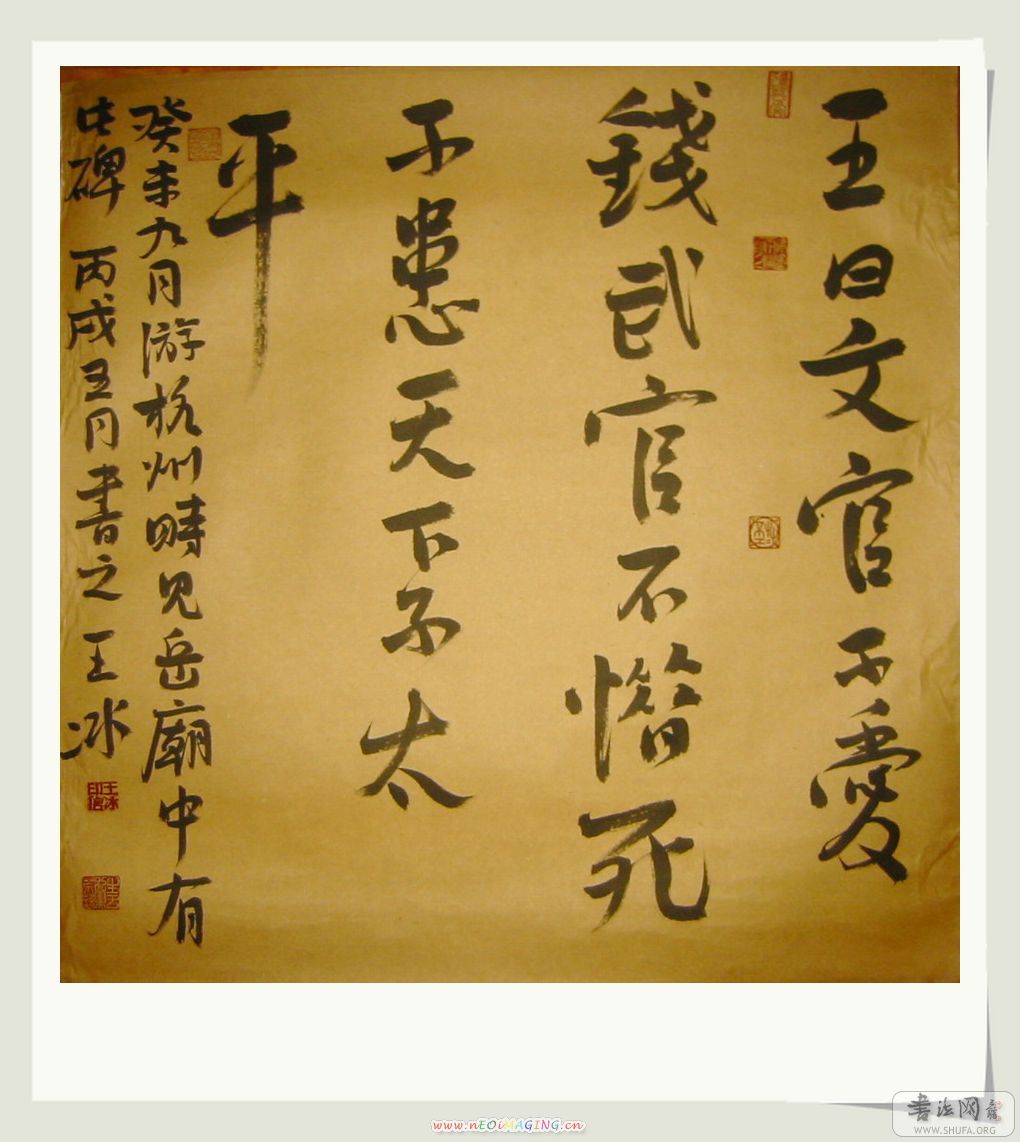 王曰文官不愛
錢武官不惜死
不患天下不太
平
癸未九月游杭州時见岳廟中有
此碑 丙戌五月書之 王冰
王冰印信
書法网
WWW.SHUFA.ORG
www.nEOiMAGiNG.cn